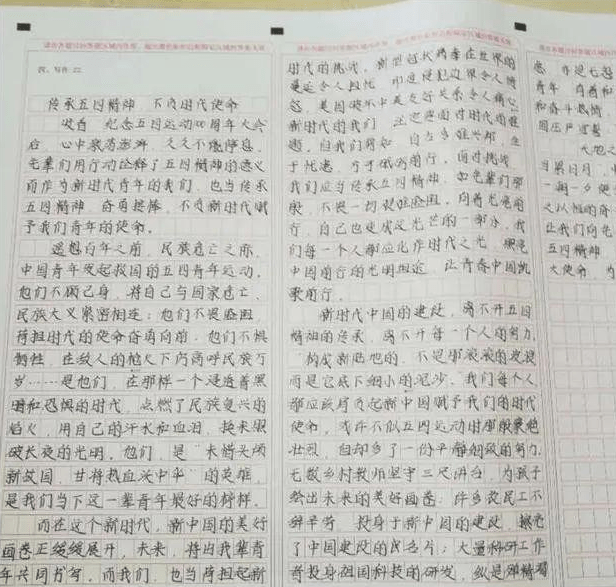 请在各题目的答题区域内作答,超出黑色矩形边框限定区域的答案无效
四、写作 22
传承五四精神 不负时代使命
收看 纪念五四运动100周年大会
后,心中激荡澎湃,久久不能停息。
先辈们用行动诠释了五四精神的意义
而作为新时代青年的我们,也当传承
五四精神,奋勇接棒,不负新时代赋
予我们青年的使命。
遥想百年之前,民族危亡之际,
中国青年发起救国的五四青年运动。
他们不顾己身,将自己与国家危亡、
民族大义紧密相连;他们不畏险阻,
荷担时代的使命奋勇向前;他们不惧
牺牲,在敌人的枪火下仍高呼民族万
岁……是他们,在那样一个浸透着黑
暗和恐惧的时代,点燃了民族复兴的
焰火,用自己的汗水和血泪,换来银
破长夜的光明。他们,是“未惜头颅
新故国,甘将热血沃中华”的英雄,
是我们当下这一辈青年最好的榜样。
而在这个新时代,新中国的美好
画卷正缓缓展开,未来,将由我辈青
年共同书写。而我们,也当荷担起新
请在各题目的答题区域内作答,超出黑色矩形边框限定区域的答案无效
时代的挑战。新型冠状病毒在世界的
蔓延令人担忧,印度侵犯边界令人愤
怒,美国破坏中美友好关系令人痛心
新时代的我们,
题,但我们明知
于忧患,
我们应当传承五四精神,如先辈们那
般,不畏一切艰难险阻,向着光亮前
行,自己也变成这光芒的一部分。我
们每一个人都应化作时代之光,照亮
中国前行的光明坦途,让青春中国凯
歌前行。
新时代中国的建设,离不开五四
精神的传承,离不开每一个人的努力
“构成新陆地的,不是那滚滚的波浪
而是它底下细小的泥沙。我们每个人
都应该肩负起新中国赋予我们的时代
使命,或许不似五四运动时那般轰轰
壮烈,但却多了一份平静细致的努力。
无数乡村教师坚守三尺讲台,为孩子
绘出未来的美好画卷;许多农民工不
辞辛劳,投身于新中国的建设,擦亮
了中国建设的闪名片;大量科研工作
者投身祖国科技的研发,纵是殚精竭
请在各题目的答
虑,亦是七尺
青年,肩负和
和奋斗热情,
国庄严宣誓
大地之
日累日月,中
一朝一夕
之以恒的
让我们向先
五四精神
大使命,为